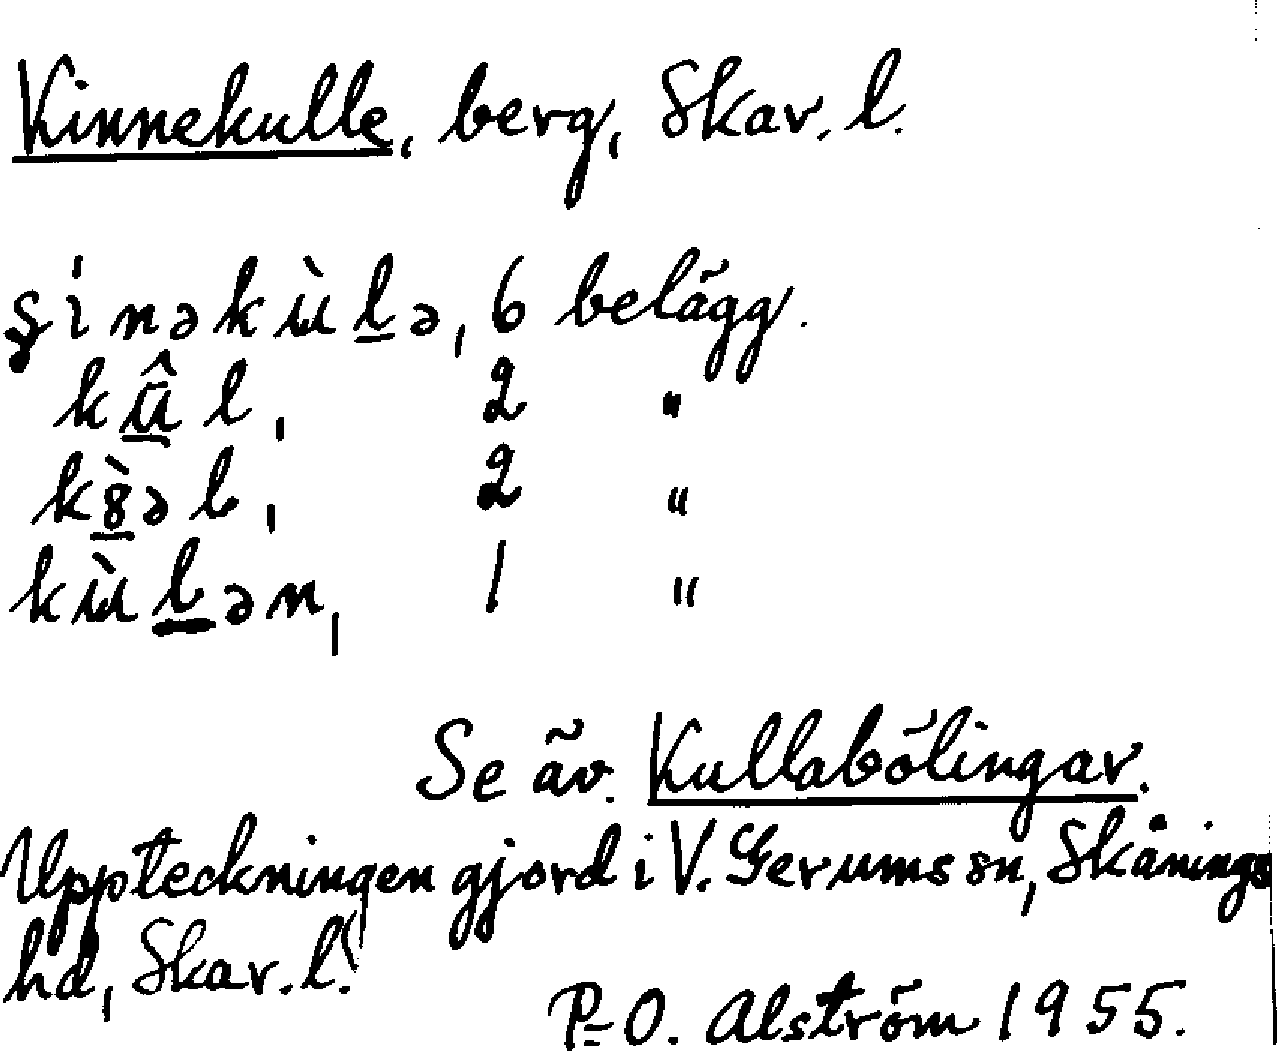 Kinnekulle, berg, Skar. l.
ʂinəkùlə, 6 belägg.
kûl, 2 "
kȣ̀əl, 2 "
kùlən, 1 "
Se äv. Kullabölingar.
Uppteckningen gjord i V. Gerums sn, Skånings
hd, Skar. l.
P.-O. Alström 1955.